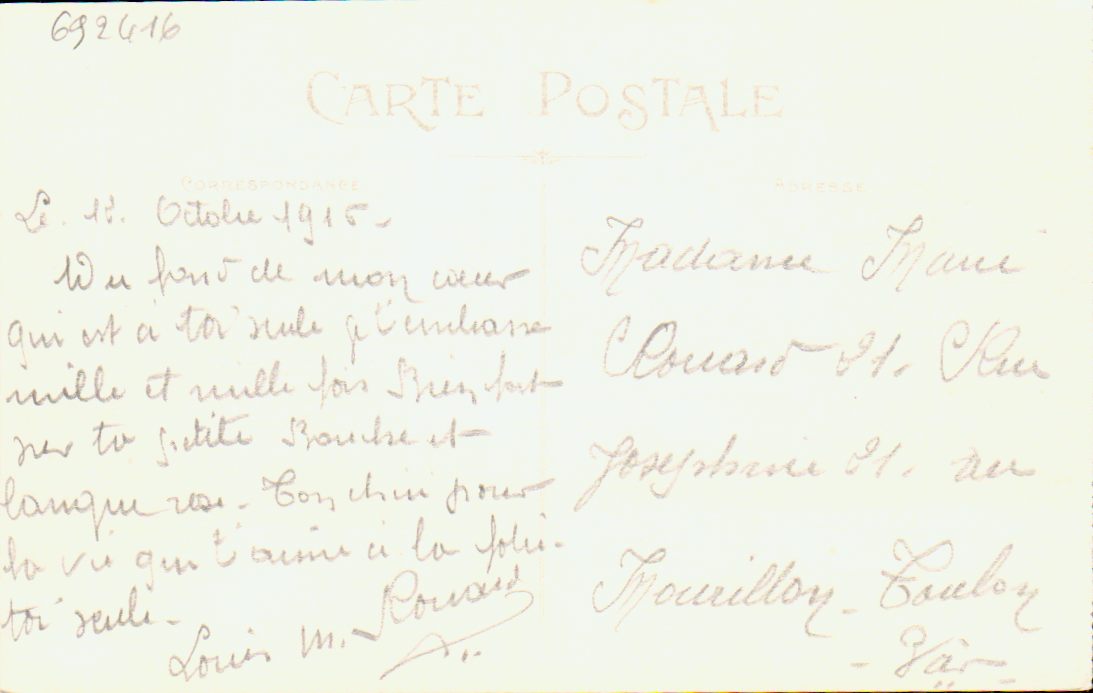 692416
CARTE POSTALE
CORRESPONDANCE
ADRESSE
Le. 12. Octobre 1915 -
Du fond de mon cœur
qui est à toi seule je t'embrasse
mille et mille fois Bien fort
sur ta petite Bouche et
langue rose - Ton chéri pour
la vie qui t'aime à la folie -
toi seule -
Louis M. Rouard
Madame Marie
Rouard 21. Rue
Josephine 21. au
Mourillon - Toulon
- Var -